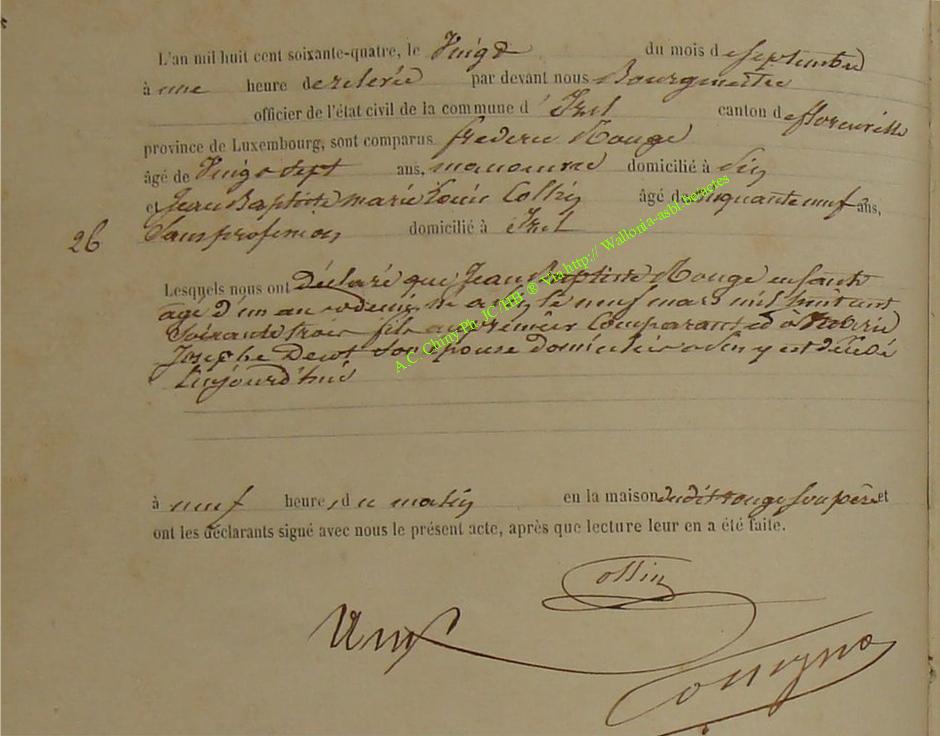 L'an mil huit cent soixante-quatre, le Vingt du mois de septembre
à une heure de relevée par devant nous Bourgmestre
officier de l'état civil de la commune d'Izel canton de florenville
province de Luxembourg, sont comparus frederic Rouge
âgé de Vingt sept ans, manoeuvre domicilié à
et Jean Baptiste marie Louis Collin âgé de cinquante neuf ans,
26 Sans profession domicilié à Izel
Lesquels nous ont Déclaré que Jean Baptiste Rouge enfant
agé d'un an le neuf mars mil huit cent
Soixante trois fils du premier Comparant et
Josephe son épouse domiciliés y est décédé
Aujourd'hui
à neuf heures du matin en la maison dudit rouge son père et
ont les déclarants signé avec nous le présent acte, après que lecture leur en a été faite.
Collin
A.C. Chiny Ph. JC/HH ® Via http://Wallonia-asbl.be/actes